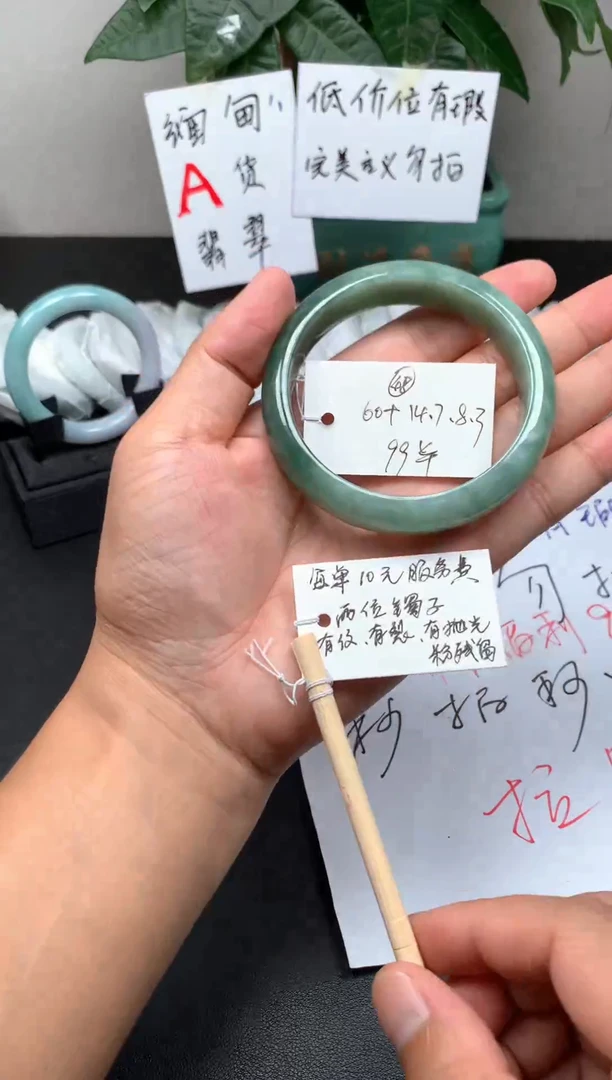 缅甸
A货
翡翠
低价位有瑕
完美主义勿拍
48
60+ 14.7.8.3
99年
每单10元服务费
两位镯子
有纹、有裂、有抛光
粉残留
勿拍
福利 9
秒拍秒
拉